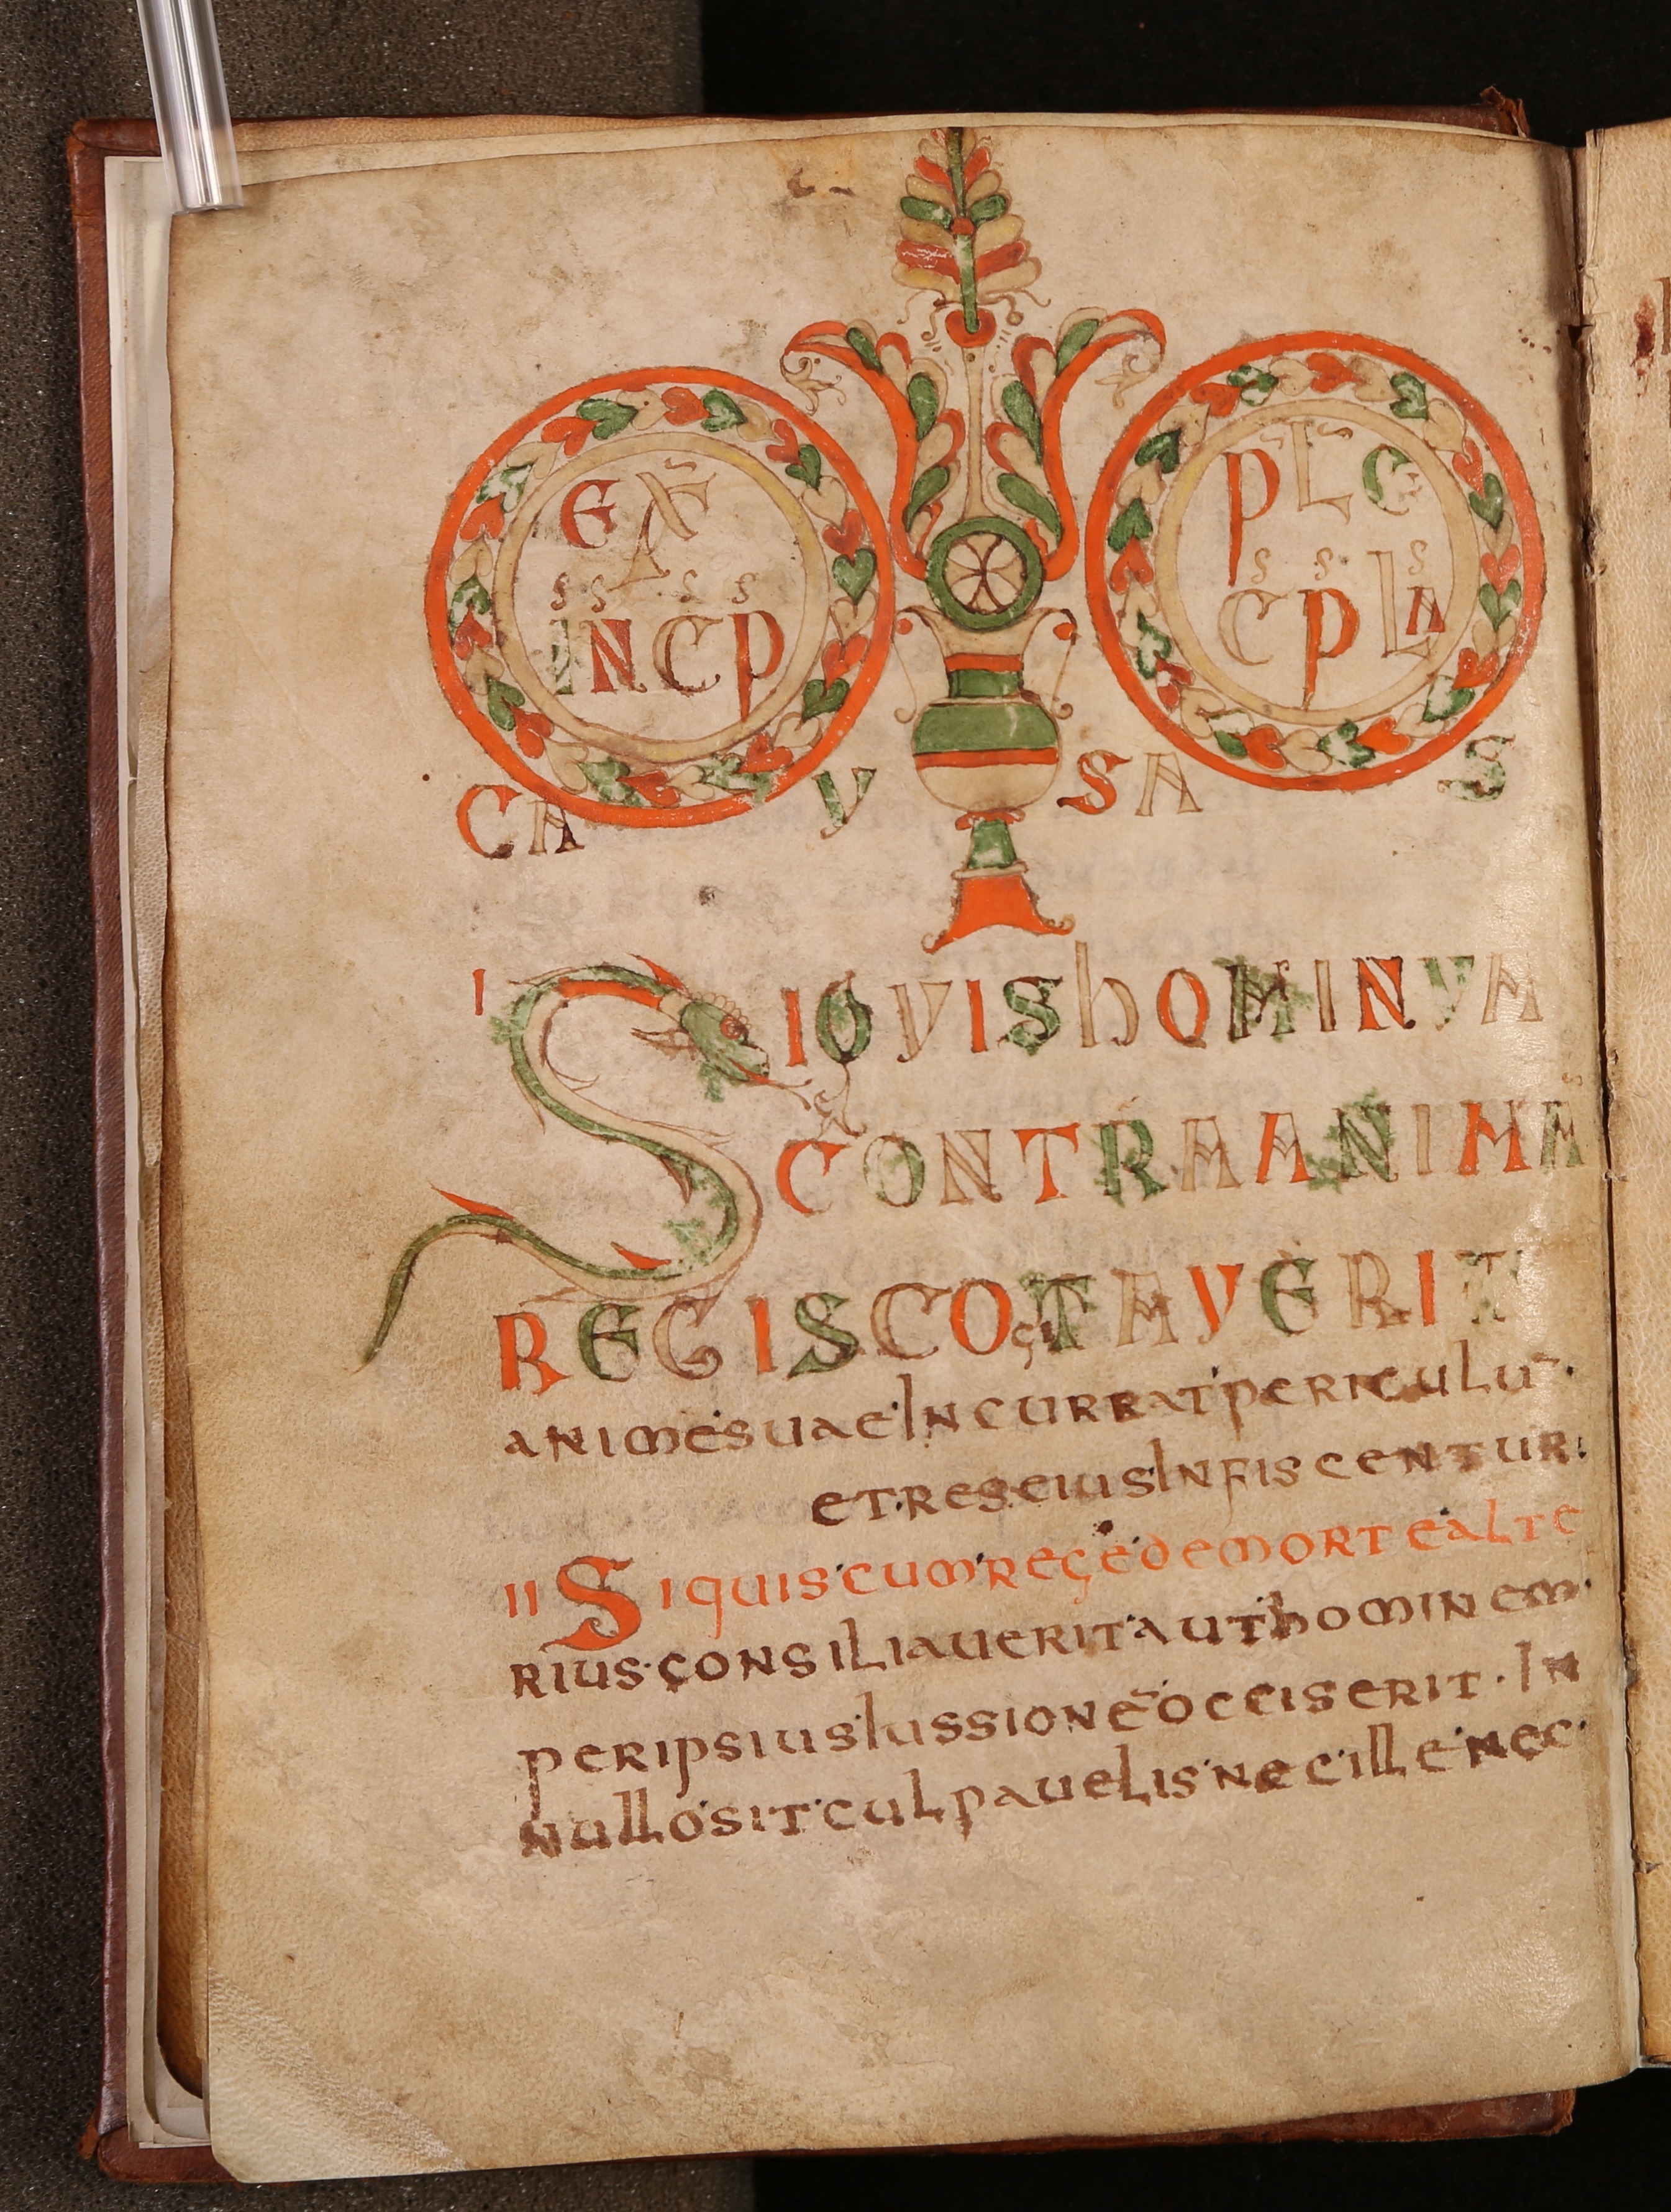 EX PLC
A
INCP CPLA
CAVSAS
I SIQVISHOMINVM
CONTRAANIMA
REGISCOGITAVERIT
animesuaeIncurratpericulū.
etreseiusInfiscentur.
II Siquiscumregedemortealte
riusconsiliaueritauthominem.
peripsiusIussioneocciserit. In
nullositculpauelisnecillenec.